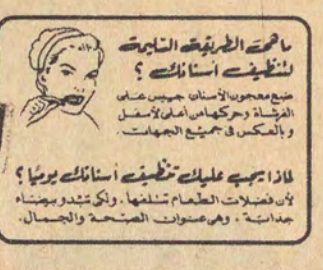 ما هي الطريقة السليمة
لتنظيف أسنانك ؟
ضع معجون الأسنان جبس على
الفرشاة وحركها من أعلى لأسفل
وبالعكس فى جميع الجهات .
لماذا يجب عليك تنظيف أسنانك يوميا ؟
لأن فضلات الطعام تتلفها . ولكى تبدو بيضاء
جذابة ، وهى عنوان الصحة والجمال .